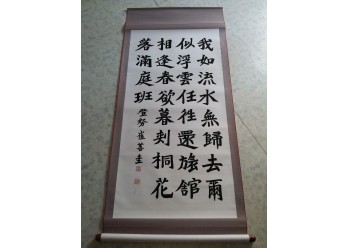 我如流水無歸去爾
似浮雲任往還旅舘
相逢春欲暮刺桐花
落滿庭班 崔善圭